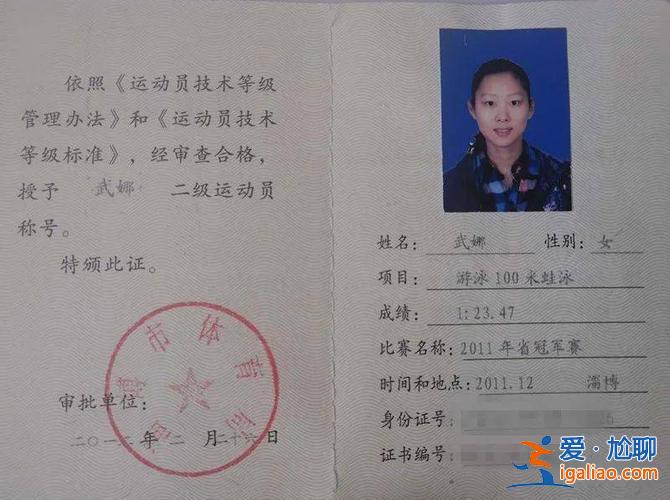 依照《运动员技术等级
管理办法》和《运动员技术
等级标准》，经审查合格，
授予 武娜 二级运动员
称号。
特颁此证。
市体育局
审批单位：
二〇一二年 二 月二十 日
姓名： 武娜 性别： 女
项目： 游泳100米蛙泳
成绩： 1:23.47
比赛名称：2011年省冠军赛
时间和地点：2011.12 淄博
身份证号：
证书编号：
爱·尬聊
igaliao.com